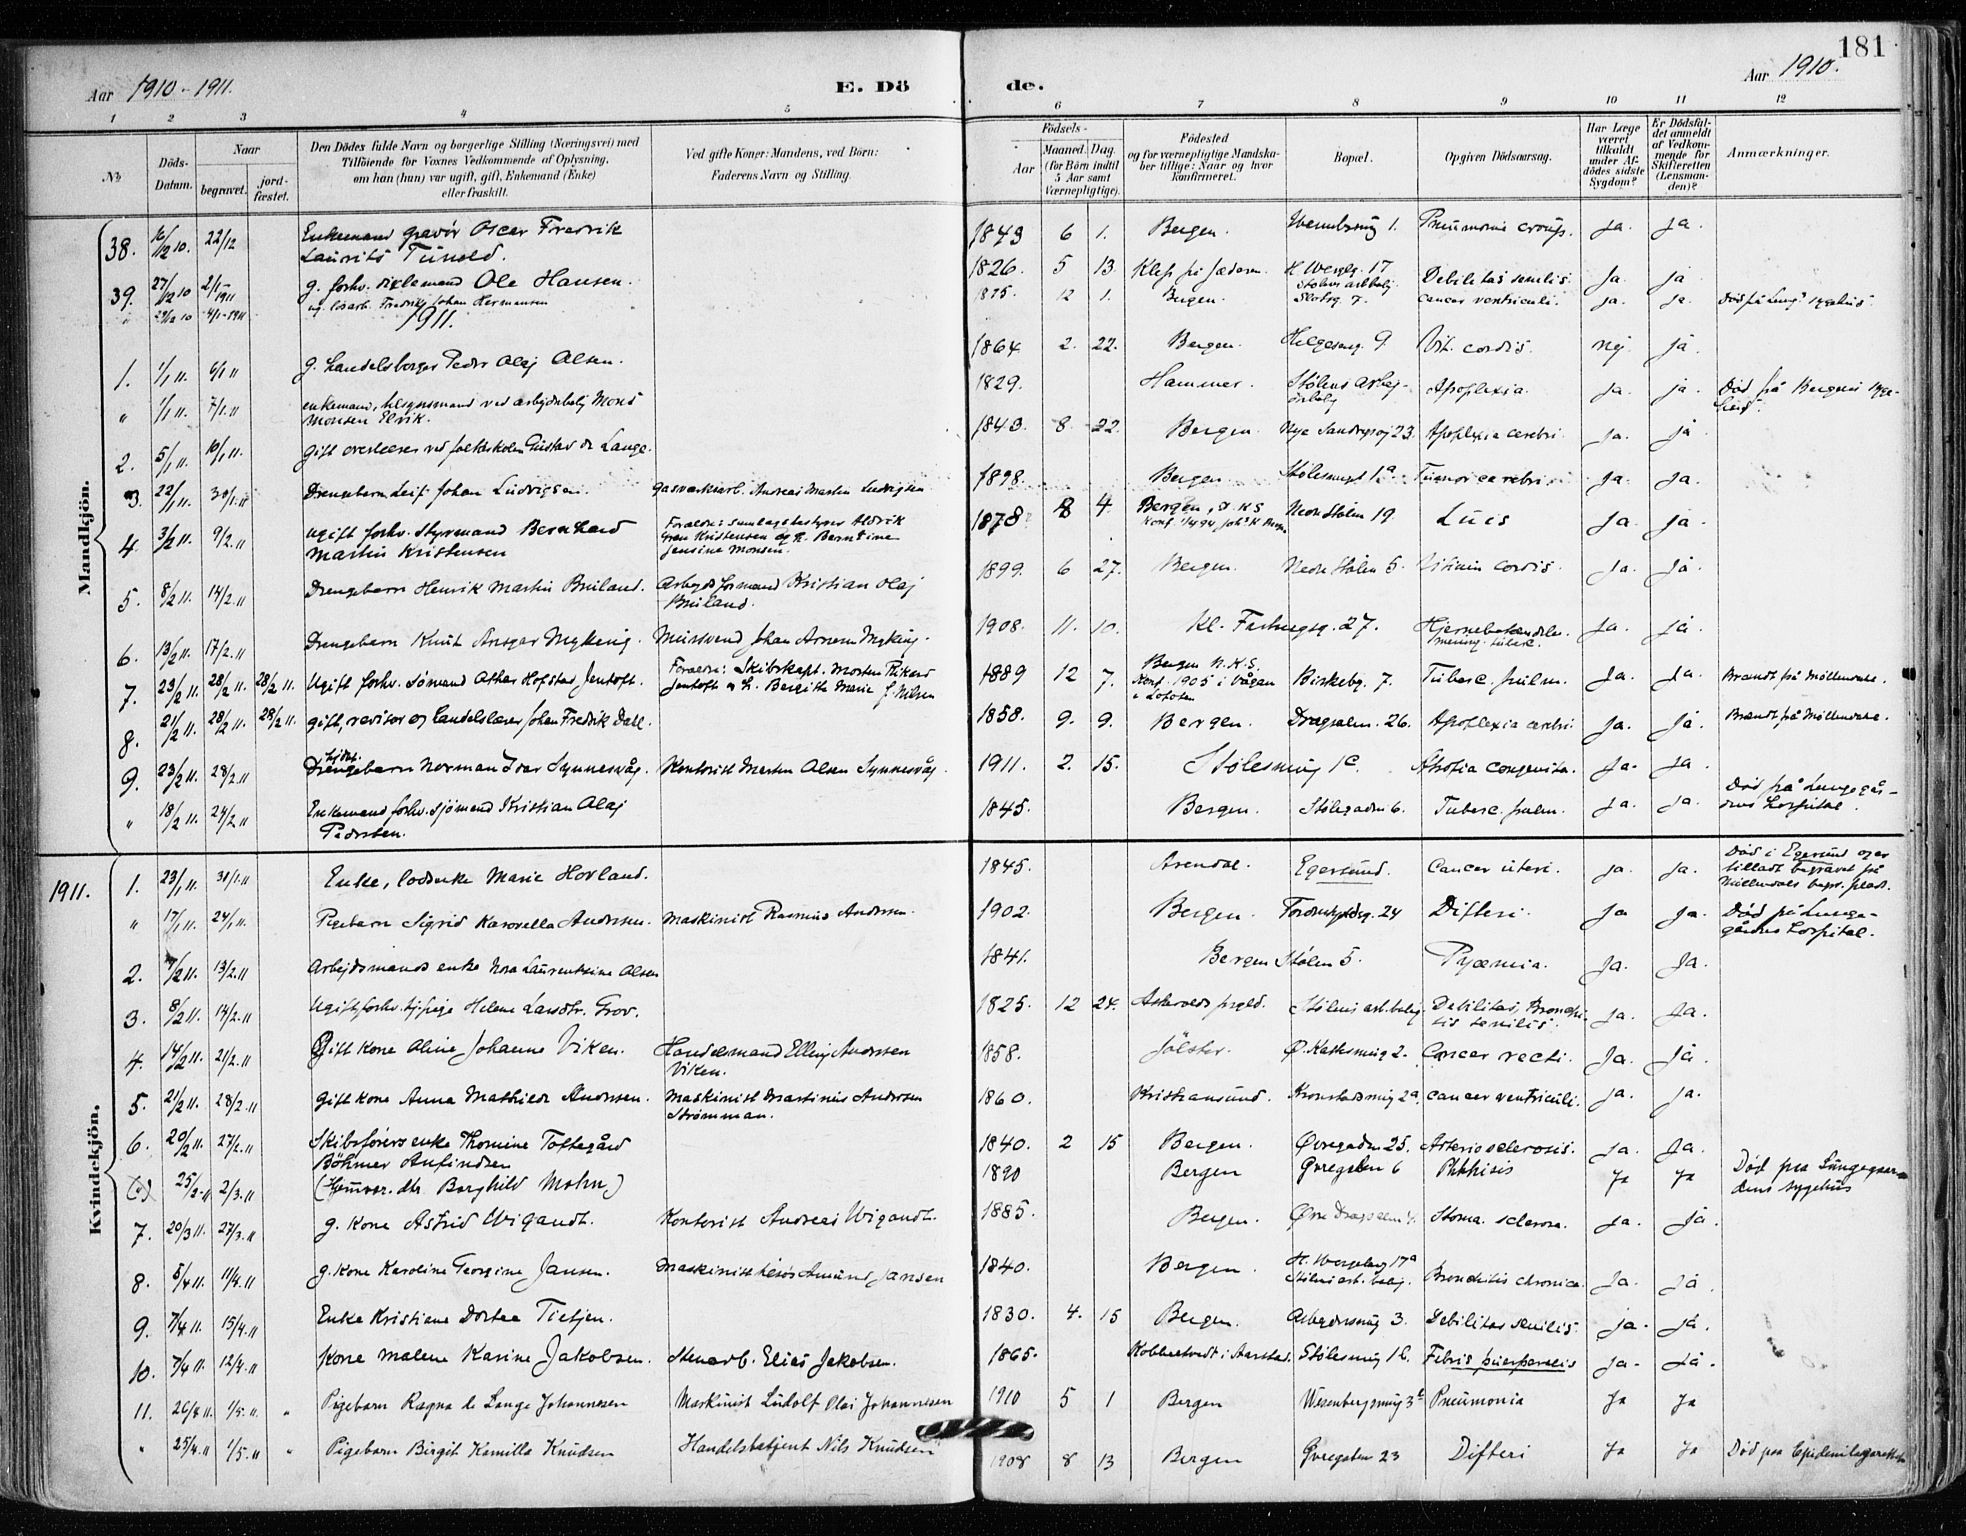 181
Aar 1910-1911.
E. Dö
de.
Aar 1910.
1 2 3 4 5 6 7 8 9 10 11 12
№
Döds-Datum.
Naar
begravet.
jord-fæstet.
Den Dödes fulde Navn og borgerlige Stilling (Næringsvei) med
Tilföiende for Voxnes Vedkommende af Oplysning,
om han (hun) var ugift, gift, Enkemand (Enke)
eller fraskilt.
Ved gifte Koner: Mandens, ved Börn:
Faderens Navn og Stilling.
Födsels-
Aar
Maaned. Dag.
(for Börn indtil
5 Aar samt
Værnepligtige).
Födested
og for værnepligtige Mandska-
ber tillige: Naar og hvor
konfirmeret.
Bopæl.
Opgiven Dödsaarsag.
Har Læge
været
tilkaldt
under Af-
dödes sidste
Sygdom?
Er Dödsfal-
det anmeldt
af Vedkom-
mende for
Skifteretten
(Lensman-
den)?
Anmærkninger.
Mandkjön.
38. 16/12 10. 22/12 Enkemand gravör Oscar Fredrik 1849 6 1. Bergen. 1. Pneumonia croup. Ja. Ja.
Laurits Tunold.
39. 27/12 10 2/1-1911 g. forhv. Ole Hansen. 1826. 5 13. Klep på Jæderen. H. Wergls. 17 Debilitas senilis. Ja. ja
Stølens arbbolig
" 29/12 10 4/1-1911 ug. løsarb. Fredrik Johan Hermansen 1875. 12 1. Bergen. Slotsg. 7. cancer ventriculi. ja. ja. Død på Lungs sygehus.
1911.
1. 1/1 11. 6/1 11 g. handelsborger Peder Olaj Olsen. 1864 2. 22. Bergen. Helgeseng. 9. Vit. cordis. nej ja.
" 1/1 11. 7/1. 11 enkemand, tilsynsmand ved arbejderbolig Mons 1829. Hammer. Stølens arbej- Apoplexia. ja. ja. Død på Bergens syge-
Monsen Elvik. derbolig hus.
2. 5/1 11. 10/1 11. gift overlærer ved folkeskolen Gustav de Lange. 1843. 8 22. Bergen. Nye Sandvigsvej 23. Apoplexia cerebri. Ja. ja
3. 22/1 11. 30/1. 11 Drengebarn Leif Johan Ludvigsen. gasverksarb. Andreas Martin Ludvigsen 1898. Bergen. Stølesmug 1a. Tumor cerebri. Ja. Ja.
4. 3/2 11. 9/2. 11 ugift forhv. Styrmand Bernhard Martin Kristensen Jensine Monsen. 1878 8 4. Bergen, Nedre Stølen 19. Lues Ja. ja.
5. 8/2 11. 14/2. 11 Drengebarn Henrik Martin Bruland. Arbejdsformand Kristian Olaj Bruland. 1899. 6 27. Bergen. Nedre Stølen 5. Vitium cordis. Ja. Ja.
6. 13/2 11. 17/2. 11 Drengebarn Knut Ansgar Myking. Mursvend Johan Arnem Myking. 1908. 11. 10. Kl. Fasting. 27. Hjernebetændelse. Ja. ja
mening. tuberc.
7. 23/2 11. 28/2 11. 28/2 11. Ugift forhv. sømand Asthar Hofstad Jentoft. Forældre: Skibskapt. Morten Rikard 1889 12 7. Bergen N.K.S. Birkebg. 7. Tuberc. pulm. Ja. Ja. Brændt på Møllendale.
Jentoft & H. Bergitte Marie f. Nilsen Konf. 1905 i Vågan
i Lofoten
8. 21/2 11. 28/2 11. 28/2 11. gift, revisor og handelslærer Johan Fredrik Dahl. 1858. 9. 9. Bergen. Dragsalm. 26. Apoplexia cerebri. Ja. Ja. Brændt på Møllendale.
9. 23/2 11. 28/2. 11 Drengebarn Norman Ivar Synnesvåg. Kontorist Martin Olsen Synnesvåg. 1911. 2. 15. Stølesmug 1c. Atrofia congenita. Ja. Ja
" 18/2 11. 24/2. 11 Enkemand forhv. sjømand Kristian Olaj 1845. Bergen. Stølegaden 6. Tuberc. pulm. Ja. Ja. Død på Lungegår-
Pedersen. dens hospital.
Kvindekjön.
1911. 1. 23/1 11. 31/1. 11 Enke, losenke Marie Hovland. 1845. Arendal. Egersund. Cancer uteri. ja. Ja. Død i Egersund og er
tilladt begravet på
Møllendals begr. plads.
" 17/1 11. 24/1 11. Pigebarn Sigrid Andersen. Maskinist Rasmus Andersen. 1902. Bergen. 24 Difteri. Ja Ja. Død på Lunge-
gårdens hospital.
2. 7/2 11. 13/2. 11 Arbejdsmands enke Nora Laurentine Olsen 1841. Bergen Stølen 5. Pyæmia. Ja. Ja.
3. 8/2 11. 14/2. 11 Ugift, forhv. tj. pige Helene Grov. 1825. 12 24. Askevold prgld. Stølens arb. bolig. Debilitas, Bronchi- Ja. Ja.
tis senilis.
4. 14/2 11. 21/2. 11 Gift kone Oline Johanne Viken. Handelsmand Elling Andersen 1858. Jølster. Ø. 2. Cancer recti. Ja. Ja
Viken.
5. 21/2 11. 28/2. 11 Gift kone Anna Mathilde Andersen. Maskinist Martinus Andersen 1860. Kristiansund. 2a. cancer ventriculi. Ja. Ja.
Strømman.
6. 20/2 11. 27/2. 11 Skibsførers enke Thomine Toftegård 1840. 2 15 Bergen. Øvregaden 25. Arterio sclerosis. Ja. Ja.
Böhmer Anfindsen
(") 25/2-11 2/3. 11 (Hjemvær. dtr Borghild Mohn) 1890 Bergen Øvregaten 6 Phthisis Ja Ja Død paa Lungegaar-
dens sygehus
7. 20/3 11. 27/3. 11 g. kone Astrid Wigandt. Kontorist Andreas Wigandt. 1885. Bergen. Øvre Dragsalm. sclerosa. Ja. Ja.
8. 5/4 11. 11/4. 11 g. kone Karoline Georgine Jansen. Maskinist Amund Jansen 1840. Bergen. H. Wergelang 17a Bronchitis chronica. Ja. Ja
Stølens arb. bolig.
9. 7/4 11. 15/4. 11 Enke Kristiane Dortea Tietjen. 1830. 4. 15 Bergen. 3. Debilitas senilis. Ja. Ja.
10. 7/4 11. 12/4. 11 Kone Malene Karine Jakobsen. Stenarb. Elias Jakobsen. 1865. Kobbeltvedt i Aarstad. Stølesmug 1c. Febris puerperalis Ja. Ja.
11. 26/4 11. 1/5. 11. " Pigebarn Ragna de Lange Johannesen Maskinist Ludolf Olai Johannesen 1910 5 1 Bergen Wesenbergsmug 3b Pneumonia Ja Ja
" 25/4. 11 1/5. 11 " Pigebarn Birgit Kamilla Knudsen Handelsbetjent Nils Knudsen 1908 8 13 Bergen Øvregaten 23 Difteri Ja Ja Død paa Epidemilazarettet